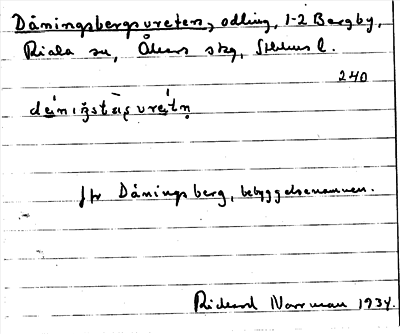 Dåningsbergsvreten, odling, 1-2 Bergby,
Riala sn, Åkers skg, Sthlms l.
240
jfr Dånings berg, bebyggelsenamnen.
Rickard Norrman 1934.